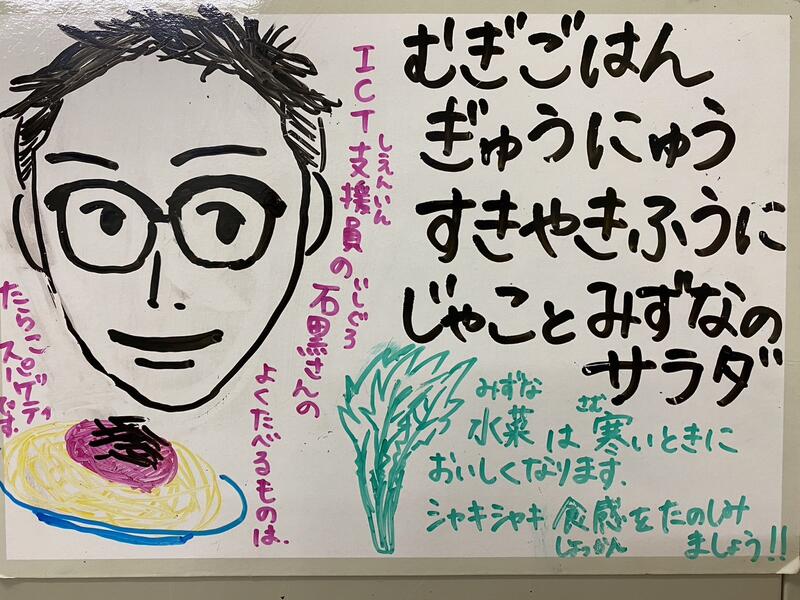 むぎごはん
ぎゅうにゅう
すきやきふうに
じゃことみずなの
サラダ
みずな
水菜は寒いときに
さむ
おいしくなります。
シャキシャキ食感をたのしみ
しょっかん
ましょう!!
ICT支援員の
しえんいん
石黒さんの
いしぐろ
よくたべるものは、
たらこ
スパゲティです。